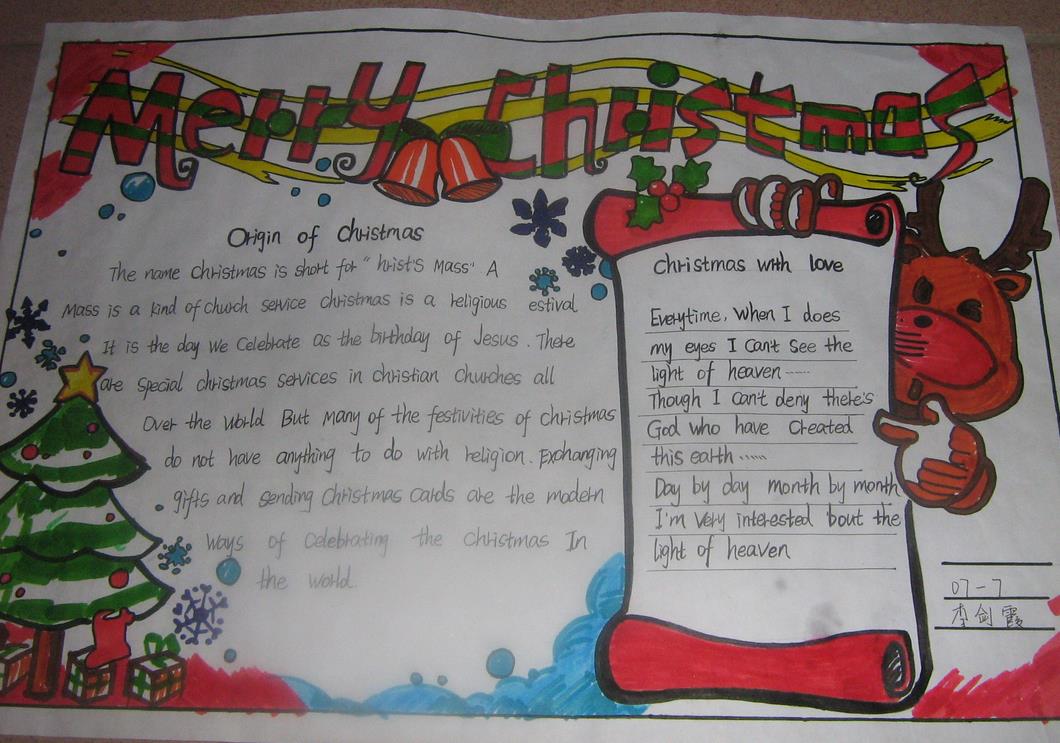 Merry Christmas
Origin of Christmas
The name christmas is short for "hrist's Mass" A
Mass is a kind of church service christmas is a religious estival
It is the day We Celebrate as the birthday of Jesus . There
are special christmas services in christian Churches all
Over the World But Many of the festivities of Christmas
do not have anything to do with religion. Exchanging
gifts and sending Christmas Cards are the modern
Ways of Celebrating the Christmas In
the world.
Christmas with love
Everytime, When I does
my eyes I Can't See the
light of heaven ······
Though I Can't deny there's
God who have Created
this earth ······
Day by day month by month
I'm Very interested 'bout the
light of heaven
07-7
李剑霞